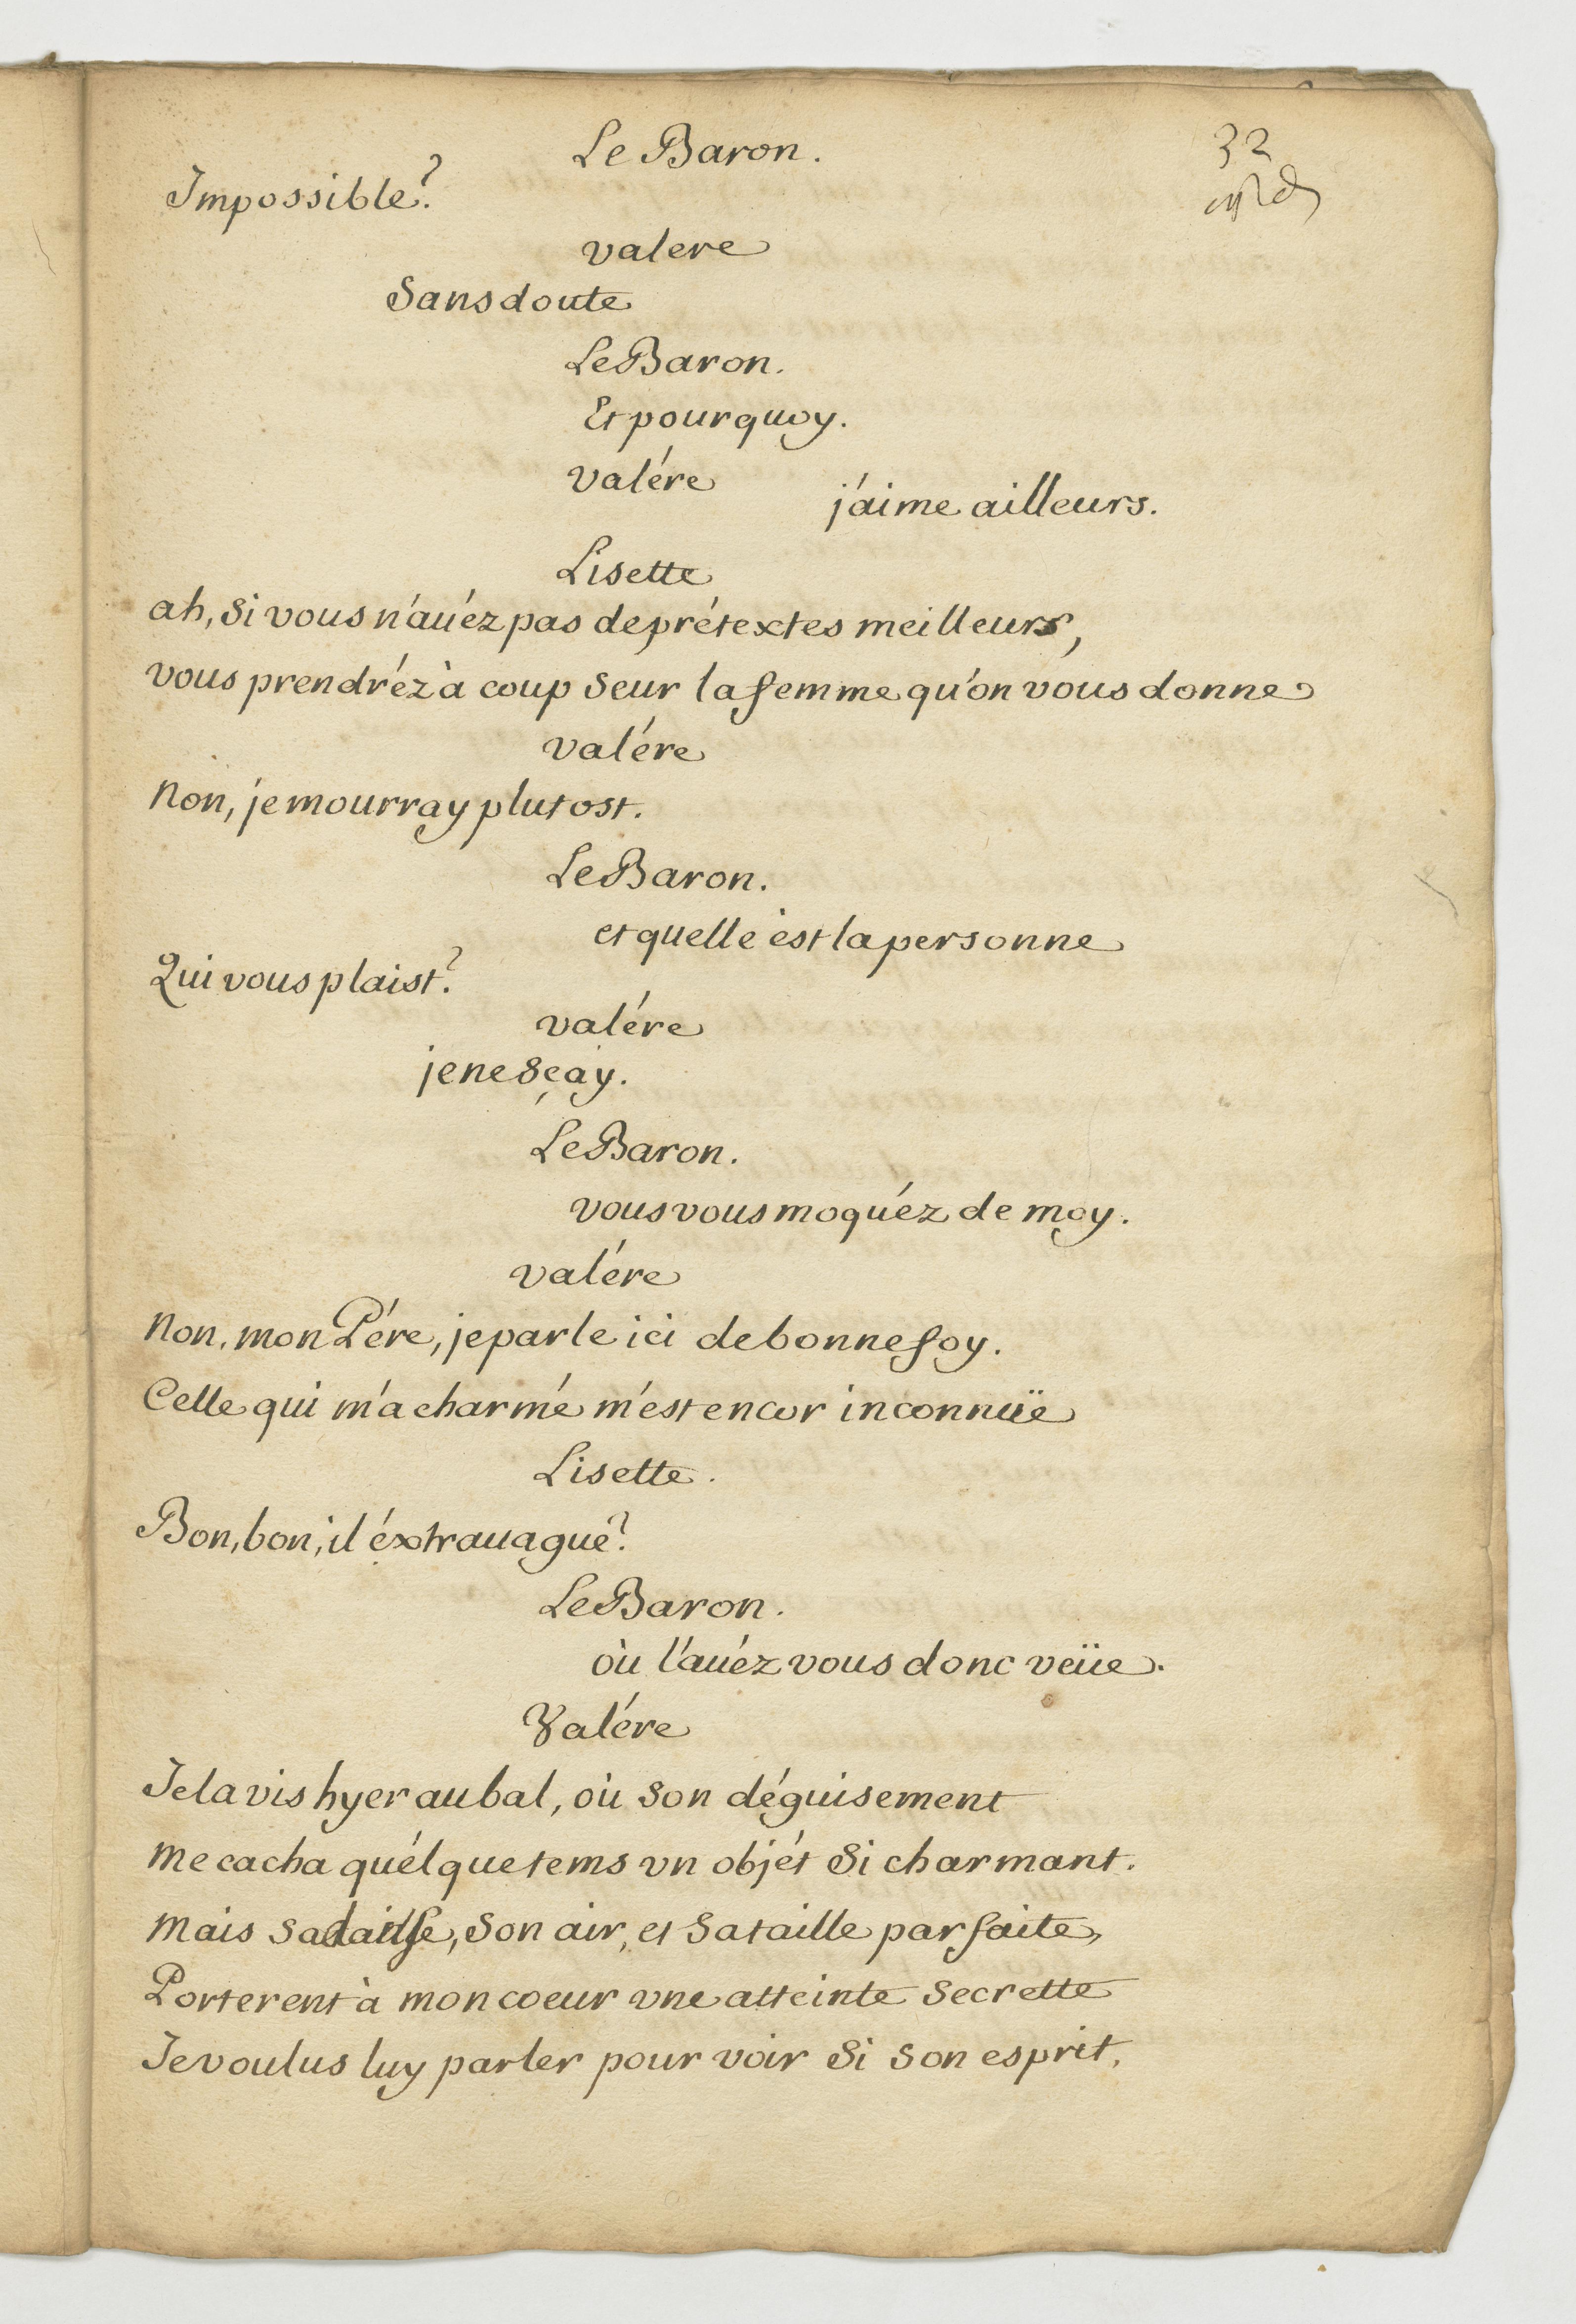 Le Baron.
32
Impossible?
valere
Sans doute
Le Baron.
Et pourquoy.
valére
j'aime ailleurs.
Lisette
ah, si vous n'auéz pas de prétextes meilleurs,
vous prendréz à coup seur la femme qu'on vous donne
valére
Non, je mourray plutost.
Le Baron.
et quelle est la personne
Qui vous plaist?
valére
je ne sçay.
Le Baron.
vous vous moquéz de moy.
valére
Non, mon Pére, je parle ici de bonne foy.
Celle qui m'a charmé m'est encor inconnüe
Lisette.
Bon, bon, il éxtrauague?
Le Baron.
où l'auéz vous donc veüe.
Valére
Je la vis hyer au bal, où son déguisement
Me cacha quélque tems vn objét si charmant.
Mais sa, son air, et sa taille parfaite,
Porterent à mon coeur vne atteinte secrette
Je voulus luy parler pour voir si son esprit,